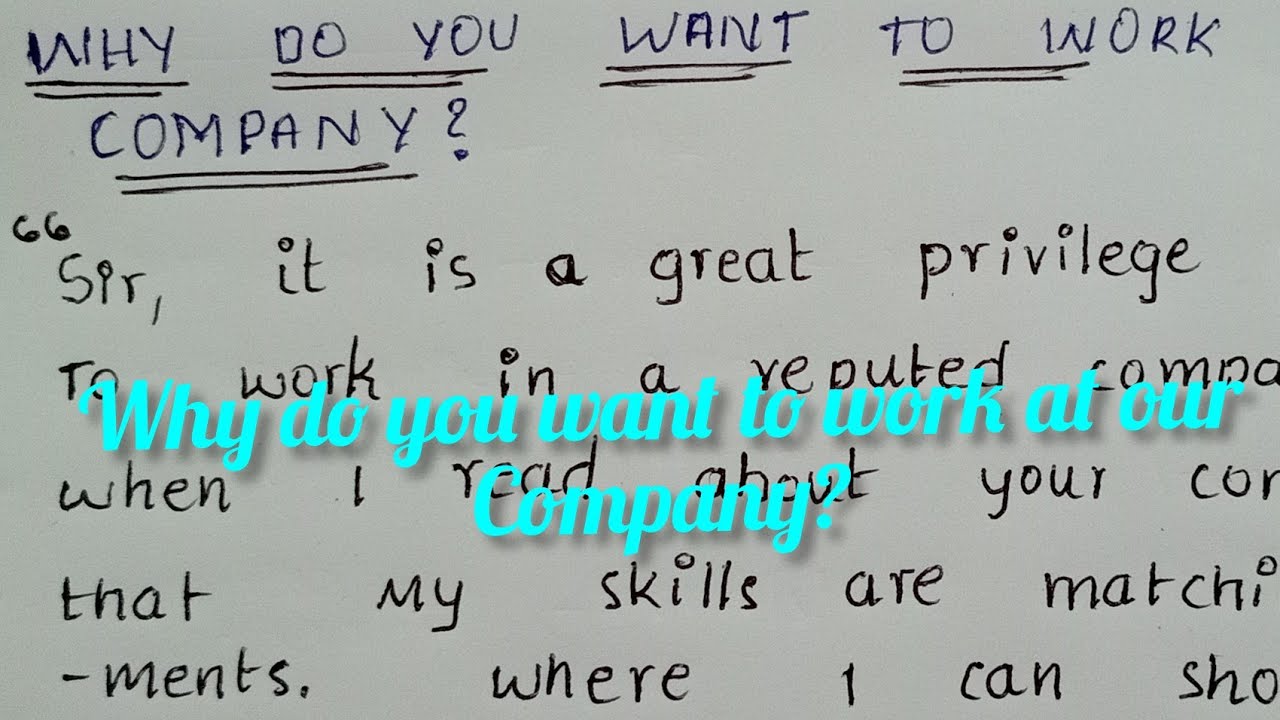 WHY DO YOU WANT TO WORK
COMPANY?
"Sir, it is a great privilege
To work in a reputed compa
Why do you want to work at our
when I read about your con
Company?
that My skills are matchi
-ments. where I can sho